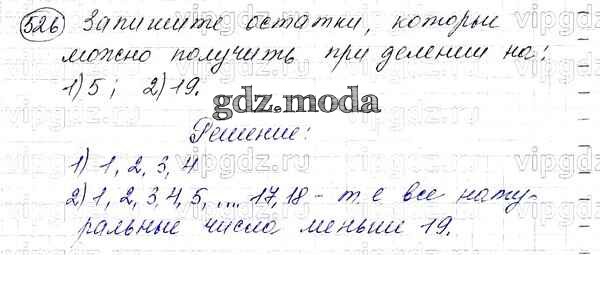 526 Запишите остатки, которые
можно получить при делении на:
1) 5; 2) 19.
gdz.moda
Решение:
1) 1, 2, 3, 4
2) 1, 2, 3, 4, 5, .... 17, 18 - т.е. все нату-
ральные числа меньши 19.